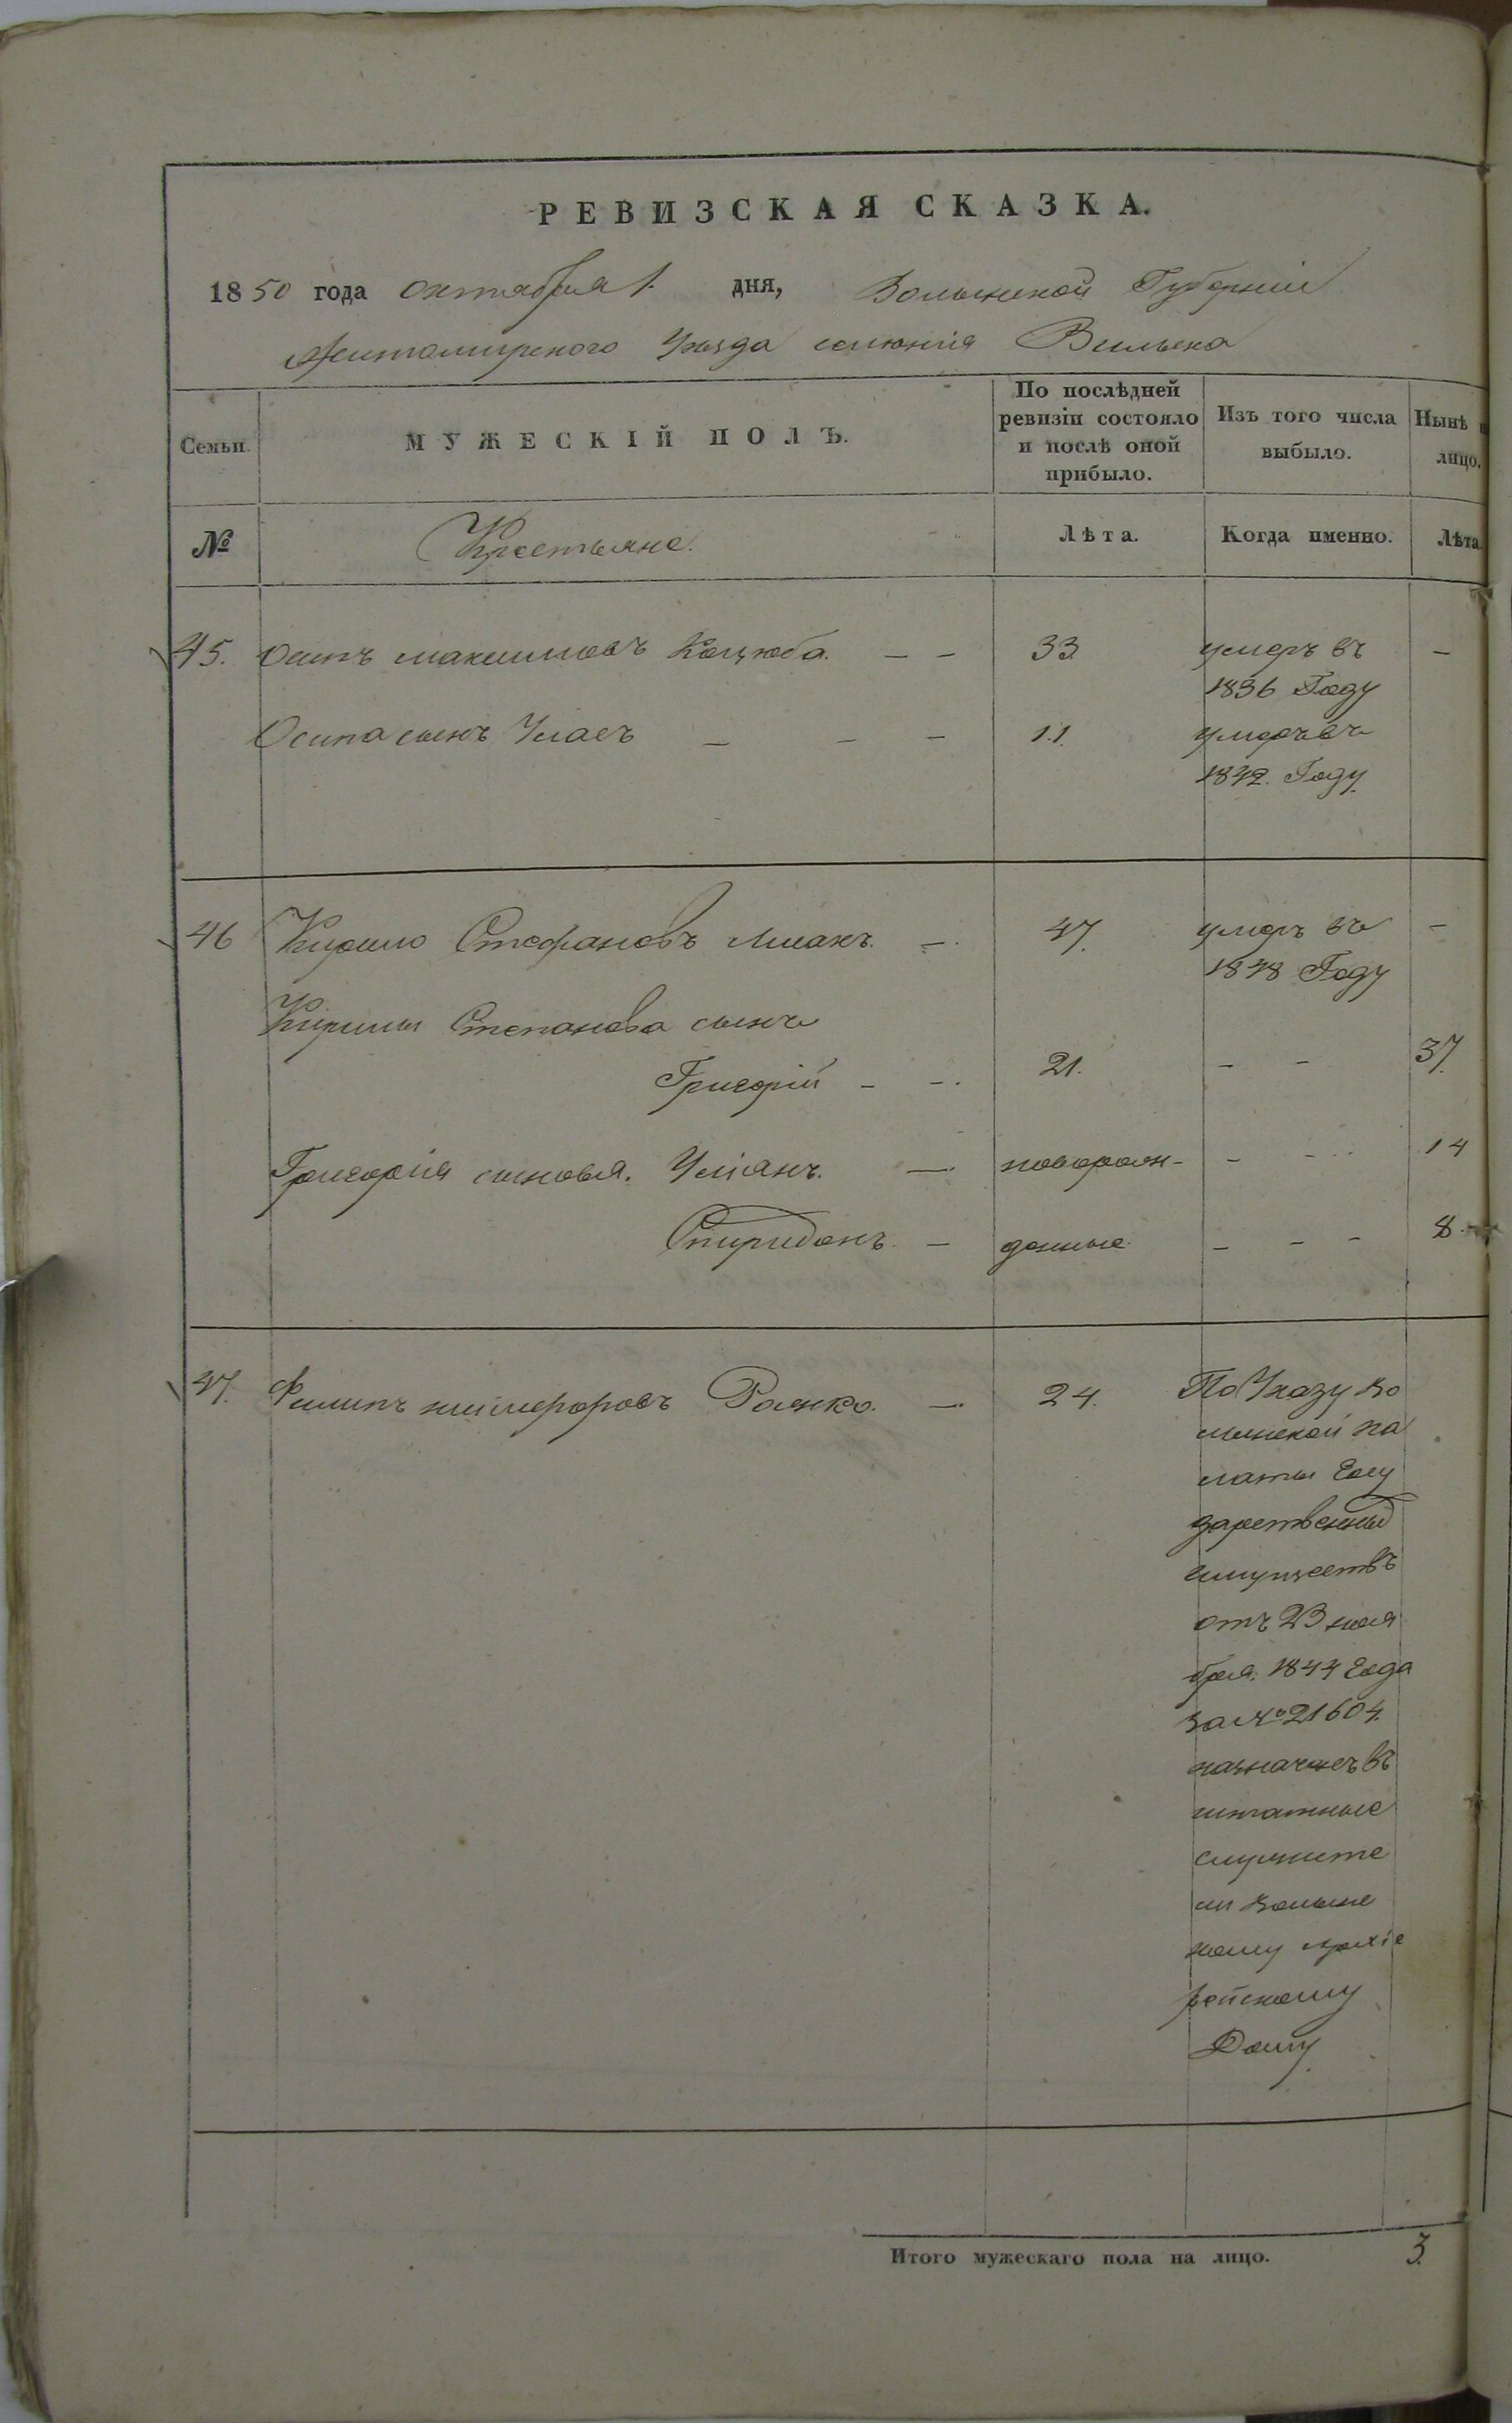 РЕВИЗСКАЯ СКАЗКА.
1850 года октября 1. дня, Волынской Губерніи
Житомирского Уезда селенія Вильска
Семьи. МУЖЕСКІЙ ПОЛЪ. По послѣдней ревизіи состояло и послѣ оной прибыло. Изъ того числа выбыло. Нынѣ лицо.
№ Крестьяне. Лѣта. Когда именно. Лѣта
45. Осипъ максимовъ Коцюба. — — 33 умеръ въ —
1836 Году
Осипа сынъ Уласъ — — — 11. умеръ въ
1842. Году
46 Кирило Стефановъ —. 47. умеръ въ —
1848 Году
Кирилы Степанова сынъ
Григорій — —. 21. — — 37.
Григорія сыновья. Уліянъ. —. новорож- — — 14
Спиридонъ. — донные. — — — 8.
47. Филипъ никифоровъ —. 24. По Указу во
лынской па
латы Госу
дарственныхъ
имуществъ
отъ 23 ноя
бря. 1844 Года
за № 21604.
назначенъ въ
штатные
служите
ли волынс
кому Архіе
рейскому
Дому
Итого мужескаго пола на лицо. 3.